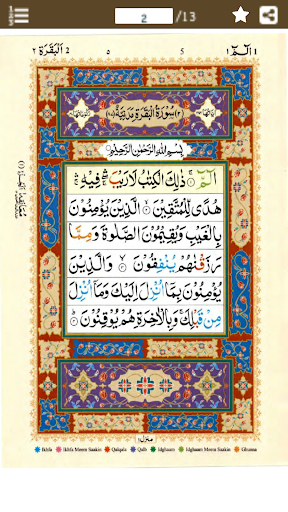 2 /13
2 اَلْبَقَرَة ٢
٥
5
الٓمّٓ ١ 1
سُوْرَةُ الْبَقَرَةِ مَدَنِيَّةٌ
بِسْمِ اللهِ الرَّحْمٰنِ الرَّحِيْمِ
الٓمّٓ ۚ ذٰلِكَ الْكِتٰبُ لَا رَيْبَ ۛ فِيْهِ ۛ
هُدًى لِّلْمُتَّقِيْنَ الَّذِيْنَ يُؤْمِنُوْنَ
بِالْغَيْبِ وَيُقِيْمُوْنَ الصَّلٰوةَ وَمِمَّا
رَزَقْنٰهُمْ يُنْفِقُوْنَ وَالَّذِيْنَ
يُؤْمِنُوْنَ بِمَآ اُنْزِلَ اِلَيْكَ وَمَآ اُنْزِلَ
مِنْ قَبْلِكَ ۚ وَبِالْاٰخِرَةِ هُمْ يُوْقِنُوْنَ
منزل ١
Ikhfa Ikhfa Meem Saakin Qalqala Qalb Idghaam Idghaam Meem Saakin Ghunna